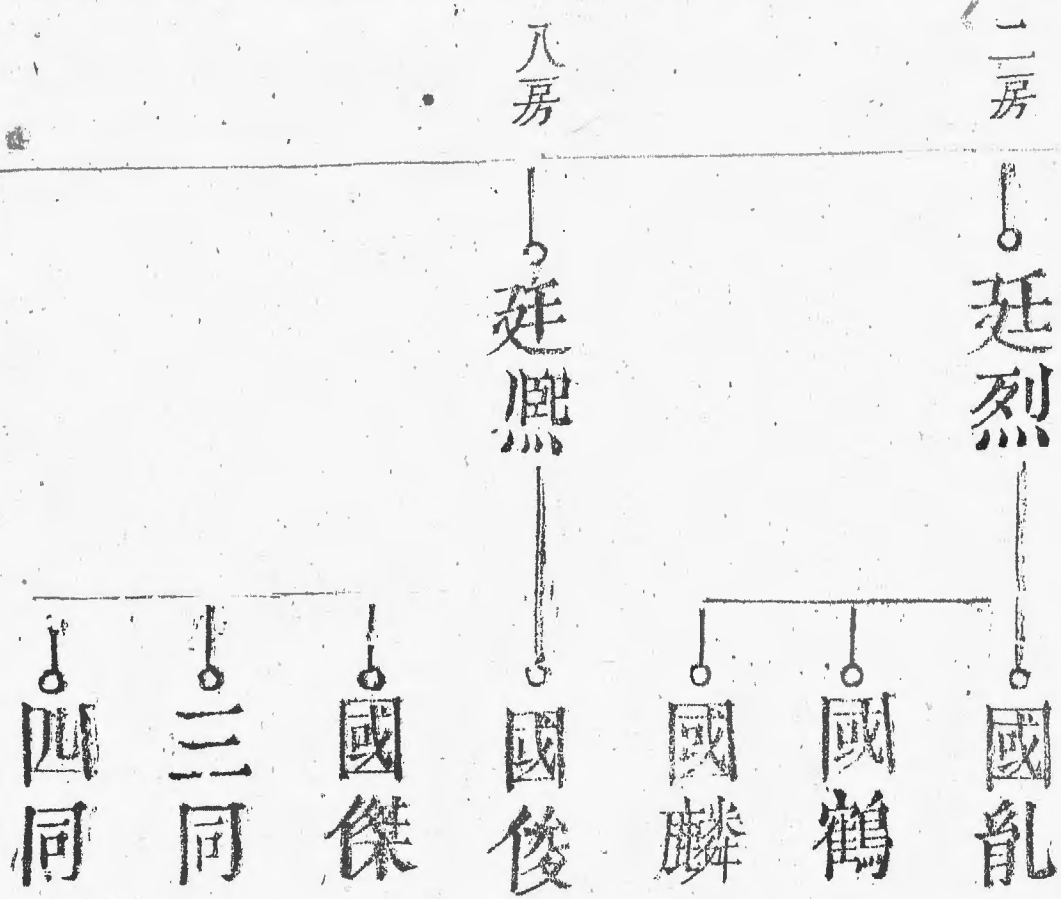 二房
廷烈
國胤
國鶴
國麟
八房
廷熙
國俊
國傑
三同
四同